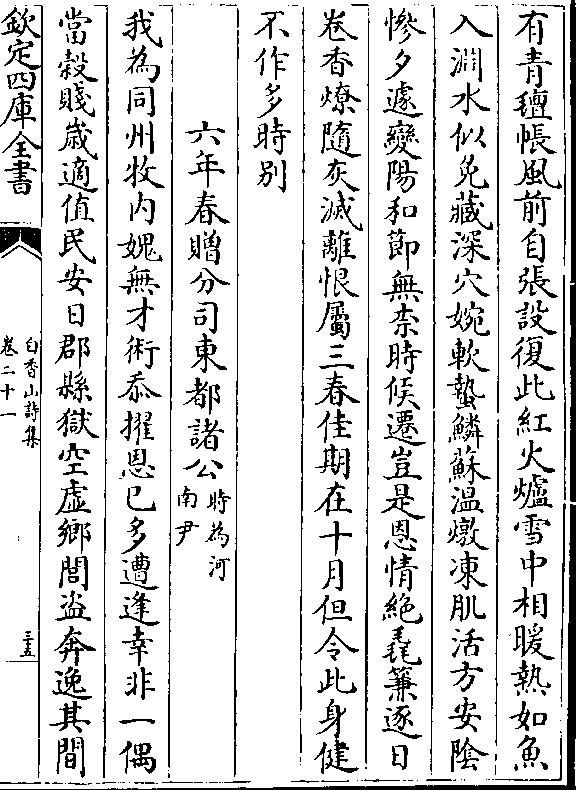 有青氊帳風前自張設復此紅火爐雪中相暖熱如魚
入淵水似免藏深穴婉軟蟄鱗蘇温燉凍肌活方安陰
慘夕遽變陽和節無柰時候遷豈是恩情絶毳簾逐日
卷香燎隨灰滅離恨屬三春佳期在十月但令此身健
不作多時别
六年春贈分司東都諸公
時為河
南尹
我為同州牧内媿無才術忝擢恩已多遭逢幸非一偶
當榖賤嵗適值民安日郡縣獄空虚鄉閭盗奔逸其間
欽定四庫全書
白香山詩集
卷二十一
三五